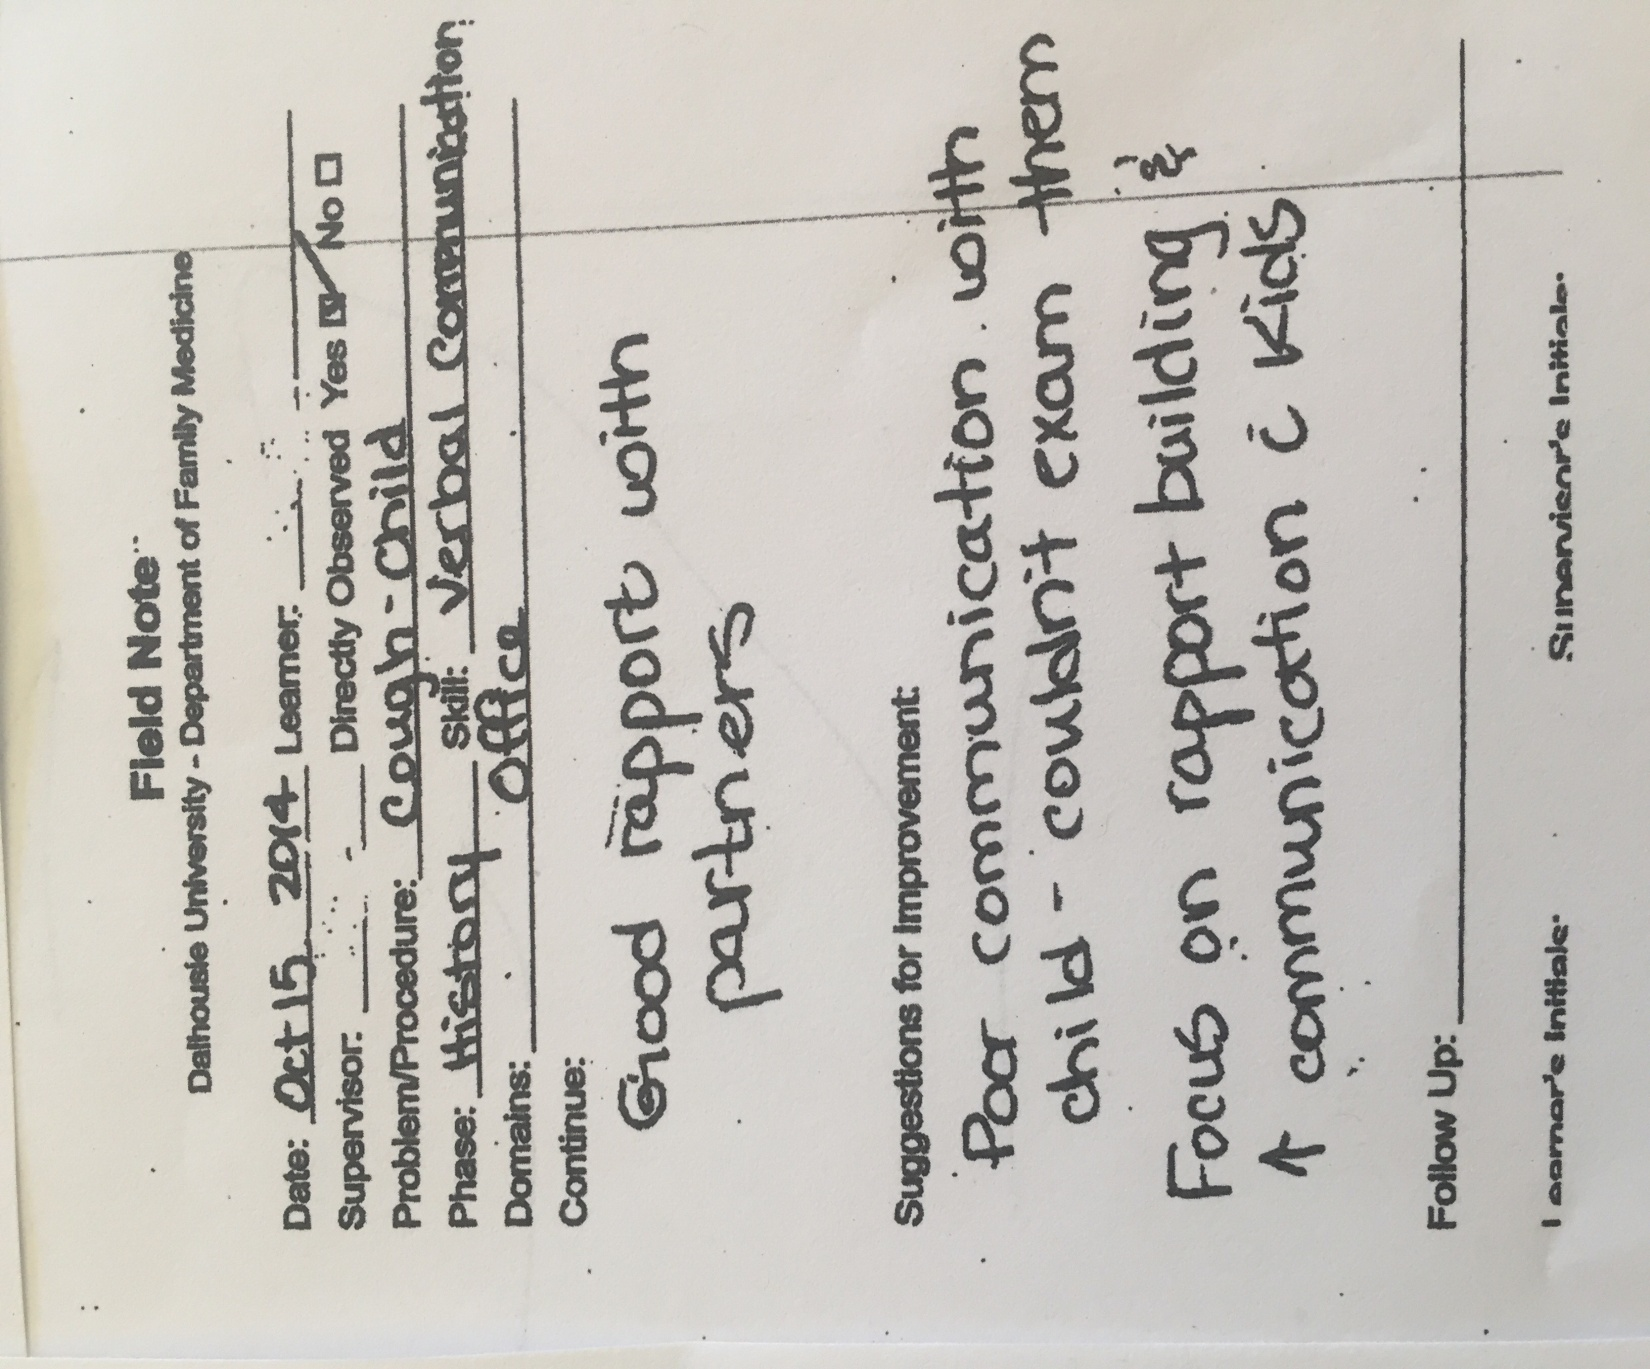 Field Note
Dalhousie University - Department of Family Medicine
Date: Oct 15 2014 Learner:
Supervisor: Directly Observed Yes ☑ No ☐
Problem/Procedure: Cough - Child
Phase: History Skill: Verbal Communication
Domains: Office
Continue:
Good rapport with
partners
Suggestions for Improvement:
Poor communication with
child - couldn't exam them
Focus on rapport building &
↑ communication c̄ Kids
Follow Up:
Learner's Initials: Supervisor's Initials: